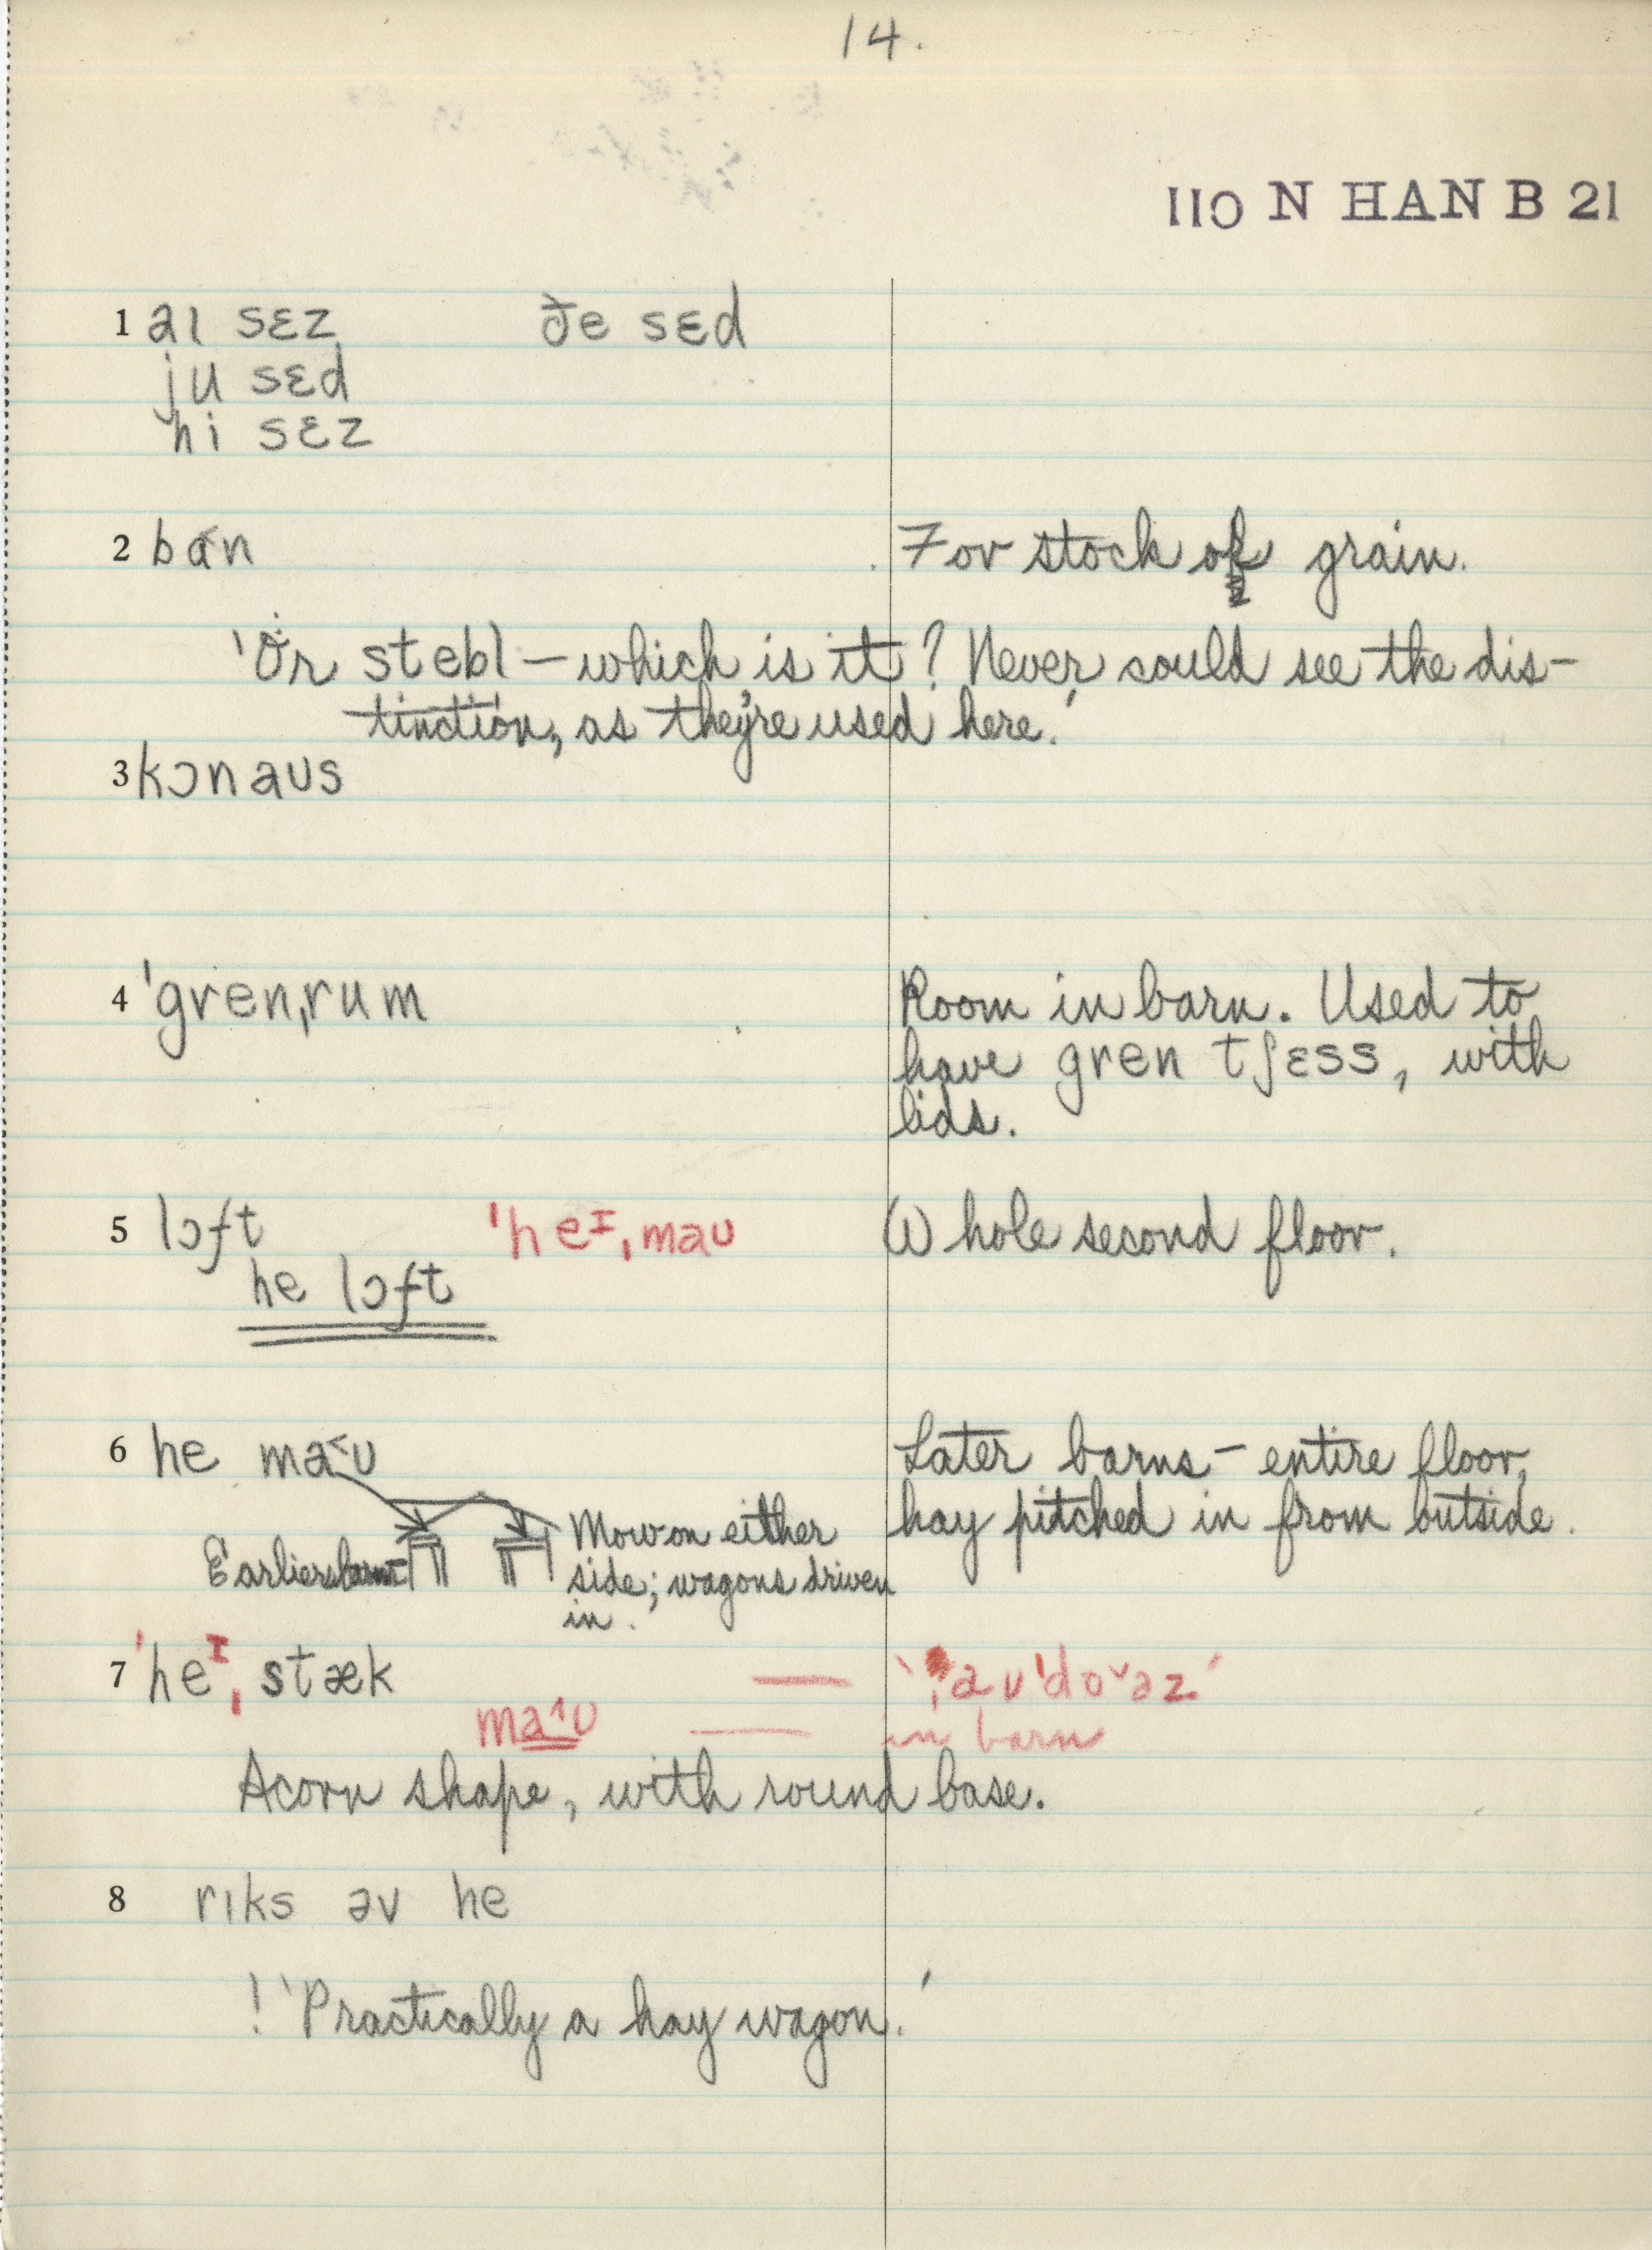 14.
110 N HAN B 21
1 aɪ sɛz ðe sɛd
ju sɛd
hi sɛz
2 ba˂n For stock of grain.
'Or stebl – which is it? Never could see the dis-
tinction, as they're used here.'
3 kɔnaus
4 ˈgrenˌrum Room in barn. Used to
have gren tʃɛss, with
lids.
5 lɔft ˈheᶦˌmaʊ Whole second floor.
he lɔft
6 he ma˂ʊ Later barns – entire floor,
hay pitched in from outside.
Earlier Mow on either
side; wagons driven
in.
7 ˈheᶦˌstæk — 'aʊˈdo˅əz'
ma˄ʊ — in barn
Acorn shape, with round base.
8 rɪks əv he
! 'Practically a hay wagon.'